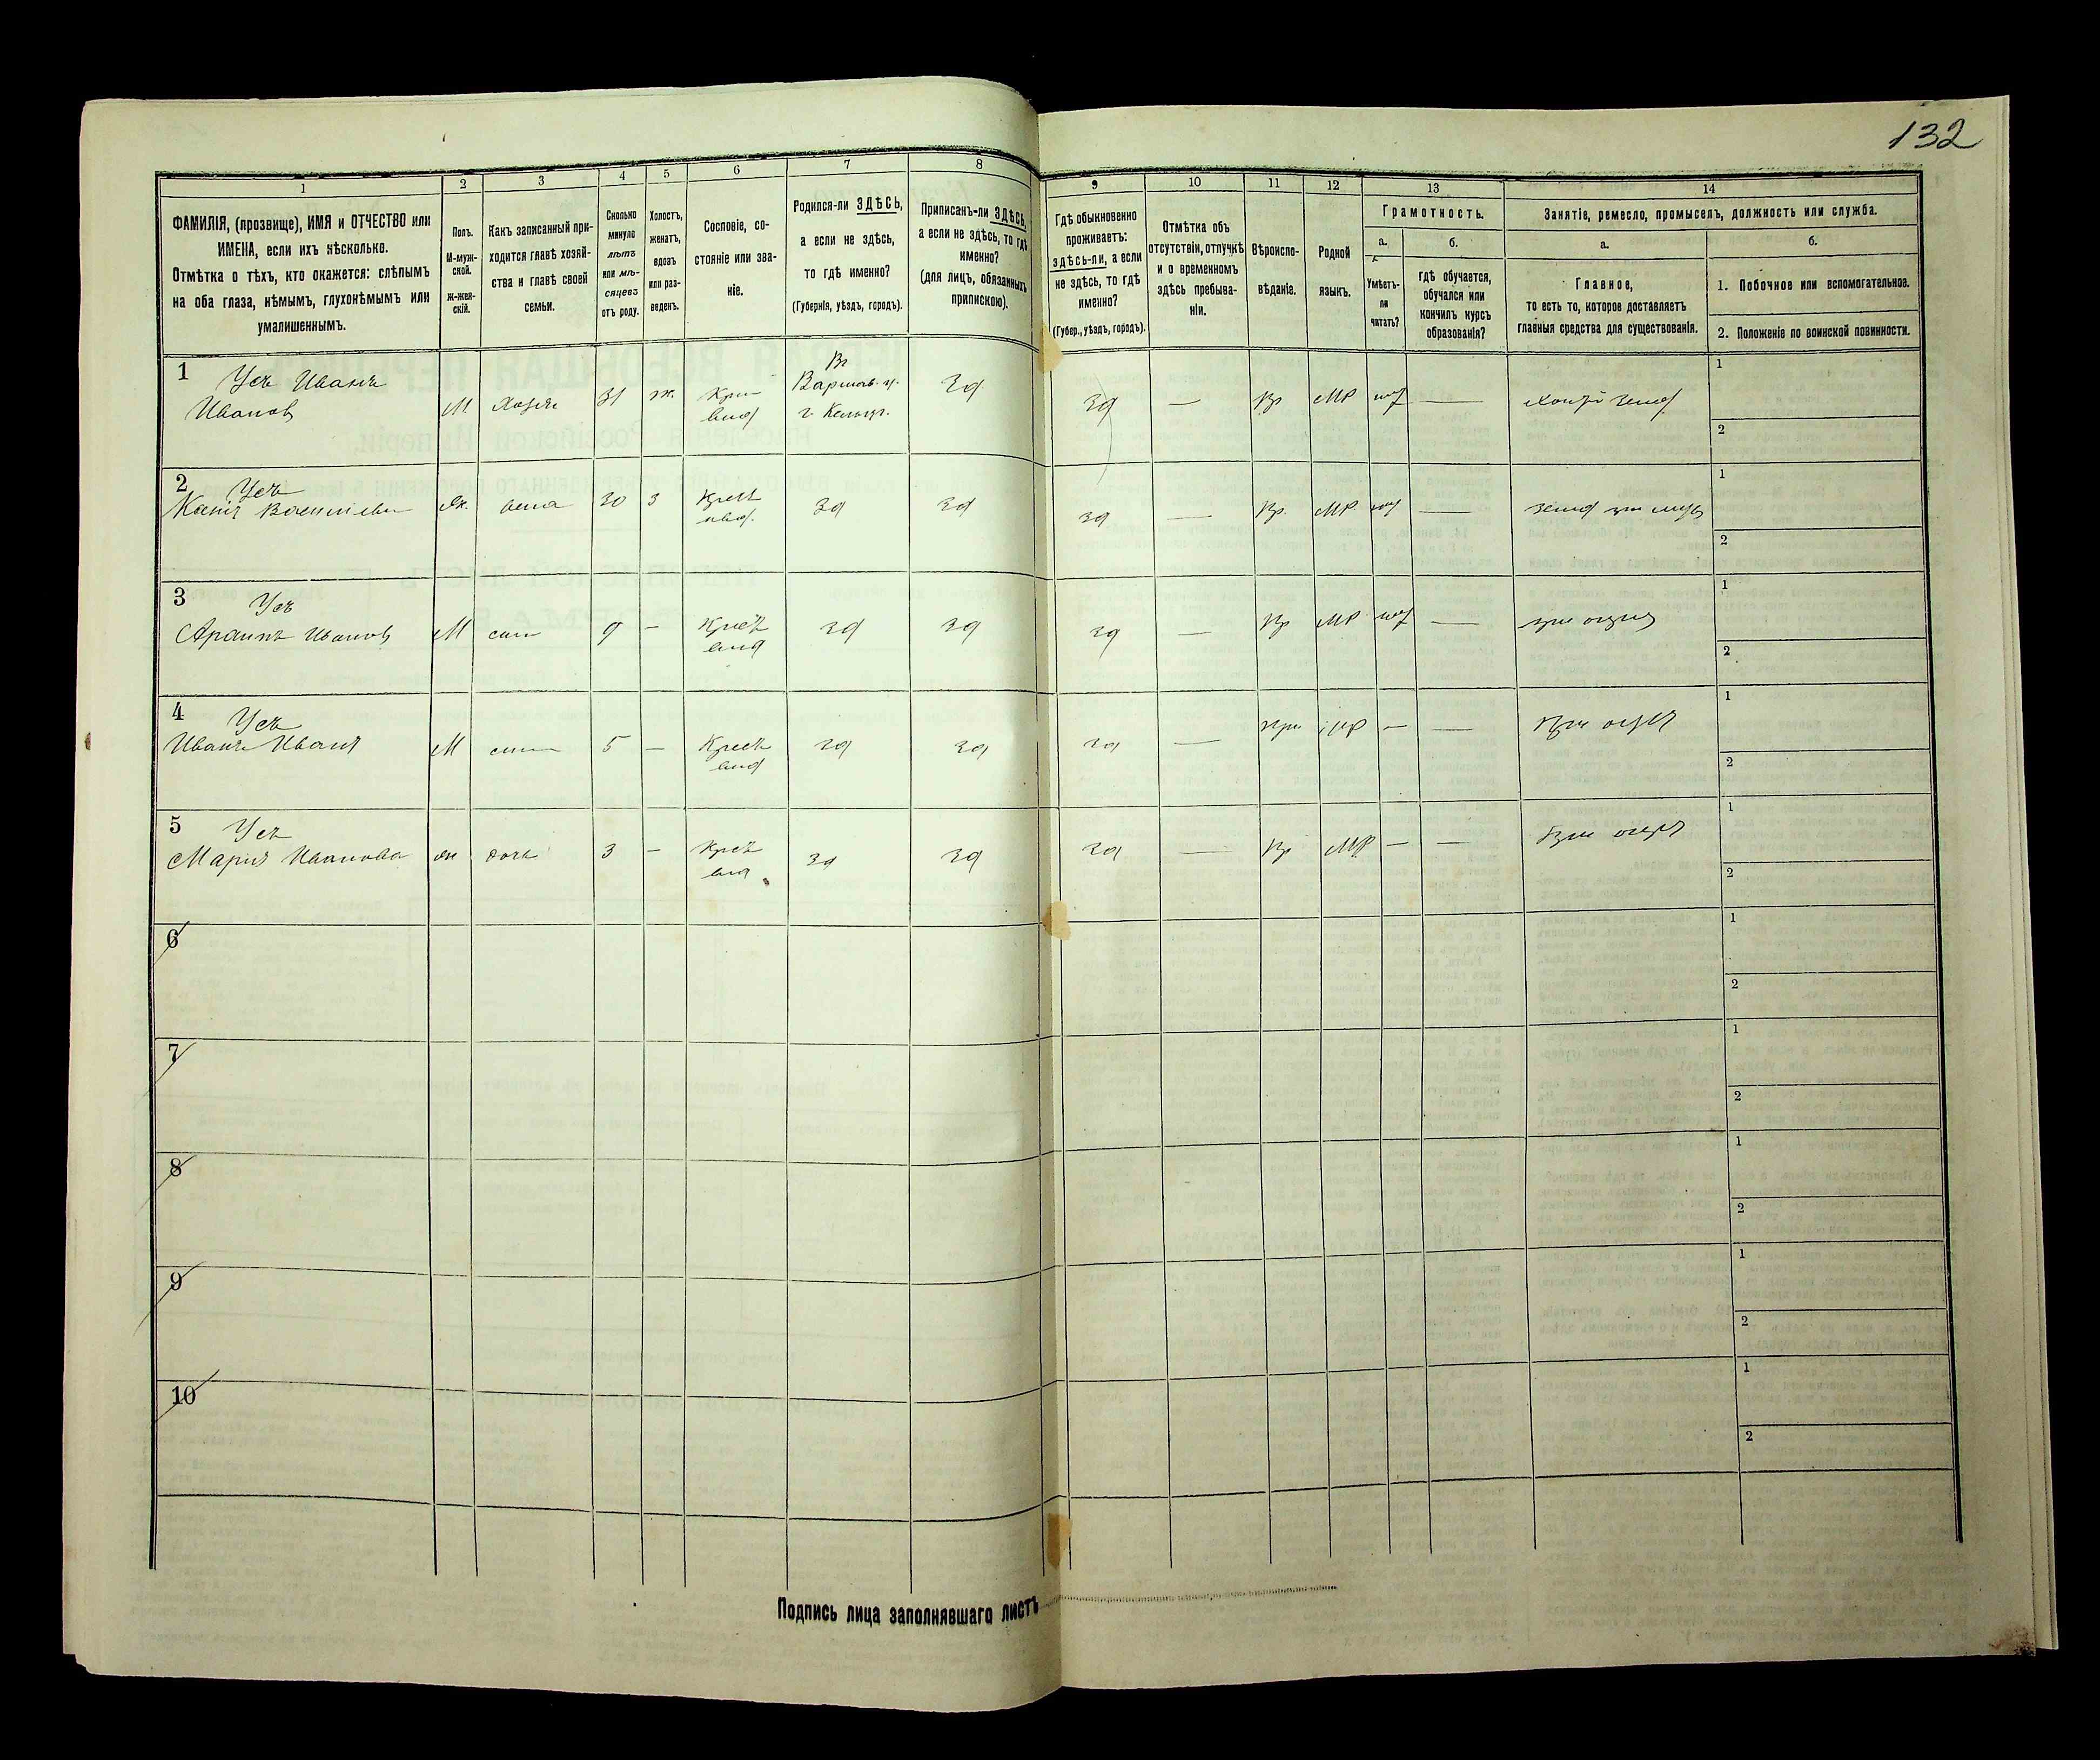 132
1
2
3
4
5
6
7
8
9
10
11
12
13
14
ФАМИЛІЯ, (прозвище), ИМЯ и ОТЧЕСТВО или
ИМЕНА, если ихъ нѣсколько.
Отмѣтка о тѣхъ, кто окажется: слѣпымъ
на оба глаза, нѣмымъ, глухонѣмымъ или
умалишеннымъ.
Полъ.
М-муж-
ской.
ж-жен-
скій.
Какъ записанный при-
ходится главѣ хозяй-
ства и главѣ своей
семьи.
Сколько
минуло
лѣтъ
или мѣ-
сяцевъ
отъ роду.
Холостъ,
женатъ,
вдовъ
или раз-
веденъ.
Сословіе, со-
стояніе или зва-
ніе.
Родился-ли ЗДѢСЬ,
а если не здѣсь,
то гдѣ именно?
(Губернія, уѣздъ, городъ).
Приписанъ-ли ЗДѢСЬ,
а если не здѣсь, то гдѣ
именно?
(для лицъ, обязанныхъ
припискою).
Гдѣ обыкновенно
проживаетъ:
здѣсь-ли, а если
не здѣсь, то гдѣ
именно?
(Губер., уѣздъ, городъ).
Отмѣтка объ
отсутствіи, отлучкѣ
и о временномъ
здѣсь пребыва-
ніи.
Вѣроиспо-
вѣданіе.
Родной
языкъ.
Грамотность.
а.
Умѣетъ-
ли
читать?
б.
гдѣ обучается,
обучался или
кончилъ курсъ
образованія?
Занятіе, ремесло, промыселъ, должность или служба.
а.
Главное,
то есть то, которое доставляетъ
главныя средства для существованія.
б.
1. Побочное или вспомогательное.
2. Положеніе по воинской повинности.
1 Усъ Иванъ
Иванов
М
31
ж.
Варшав.
г.
зд
зд
—
Пр
МР
—
1
2
2 Усъ
Васильевн
ж.
жена
30
з
зд
зд
зд
—
Пр.
МР
—
1
2
3 Усъ
Иванов
М
сын
9
—
Крест
зд
зд
зд
—
Пр
МР
—
при отцѣ
1
2
4 Усъ
Иванъ Иванов
М
сын
5
—
Крест
зд
зд
зд
—
При
МР
—
—
При отцѣ
1
2
5 Усъ
Марія Иванова
ж
дочь
3
—
Крест
зд
зд
зд
—
Пр
МР
—
—
При отцѣ
1
2
6
1
2
7
1
2
8
1
2
9
1
2
10
1
2
Подпись лица заполнявшаго листъ